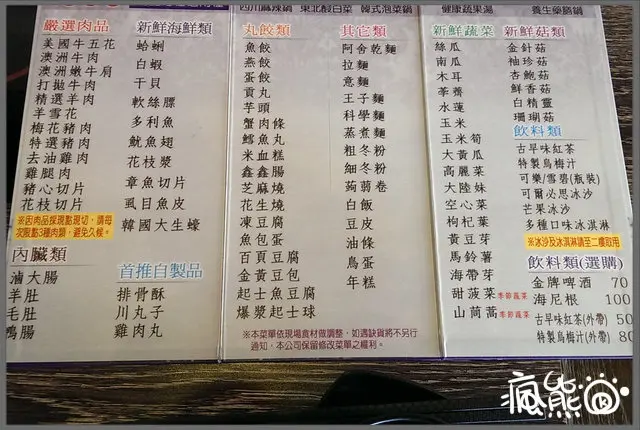 四川麻辣鍋 東北酸白菜 韓式泡菜鍋
健康蔬果湯 養生藥膳鍋
嚴選肉品
美國牛五花
澳洲牛肉
澳洲嫩牛肩
打拋牛肉
精選羊肉
羊雪花
梅花豬肉
特選豬肉
去油雞肉
雞腿肉
豬心切片
花枝切片
※因肉品採現點現切，請每
次限點3種肉類，避免久候。
內臟類
滷大腸
羊肚
毛肚
鴨腸
新鮮海鮮類
蛤蜊
白蝦
干貝
軟絲膘
多利魚
魷魚翅
花枝漿
章魚切片
虱目魚皮
韓國大生蠔
首推自製品
排骨酥
川丸子
雞肉丸
丸餃類
魚餃
燕餃
蛋餃
貢丸
芋頭
蟹肉條
鱈魚丸
米血糕
鑫鑫腸
芝麻燒
花生燒
凍豆腐
魚包蛋
百頁豆腐
金黃豆包
起士魚豆腐
爆漿起士球
其它類
阿舍乾麵
拉麵
意麵
王子麵
科學麵
蒸煮麵
粗冬粉
細冬粉
蒟蒻卷
白飯
豆皮
油條
鳥蛋
年糕
※本菜單依現場食材做調整，如遇缺貨將不另行
通知，本公司保留修改菜單之權利。
新鮮蔬菜
絲瓜
南瓜
木耳
茡薺
水蓮
玉米
玉米筍
大黃瓜
高麗菜
大陸妹
空心菜
枸杞葉
黃豆芽
馬鈴薯
海帶芽
甜菠菜 季節蔬菜
山茼蒿 季節蔬菜
新鮮菇類
金針菇
袖珍菇
杏鮑菇
鮮香菇
白精靈
珊瑚菇
飲料類
古早味紅茶
特製烏梅汁
可樂/雪碧(瓶裝)
可爾必思冰沙
芒果冰沙
多種口味冰淇淋
※冰沙及冰淇淋請至二樓取用
飲料類(選購)
金牌啤酒 70
海尼根 100
古早味紅茶(外帶) 50
特製烏梅汁(外帶) 80
瘋熊